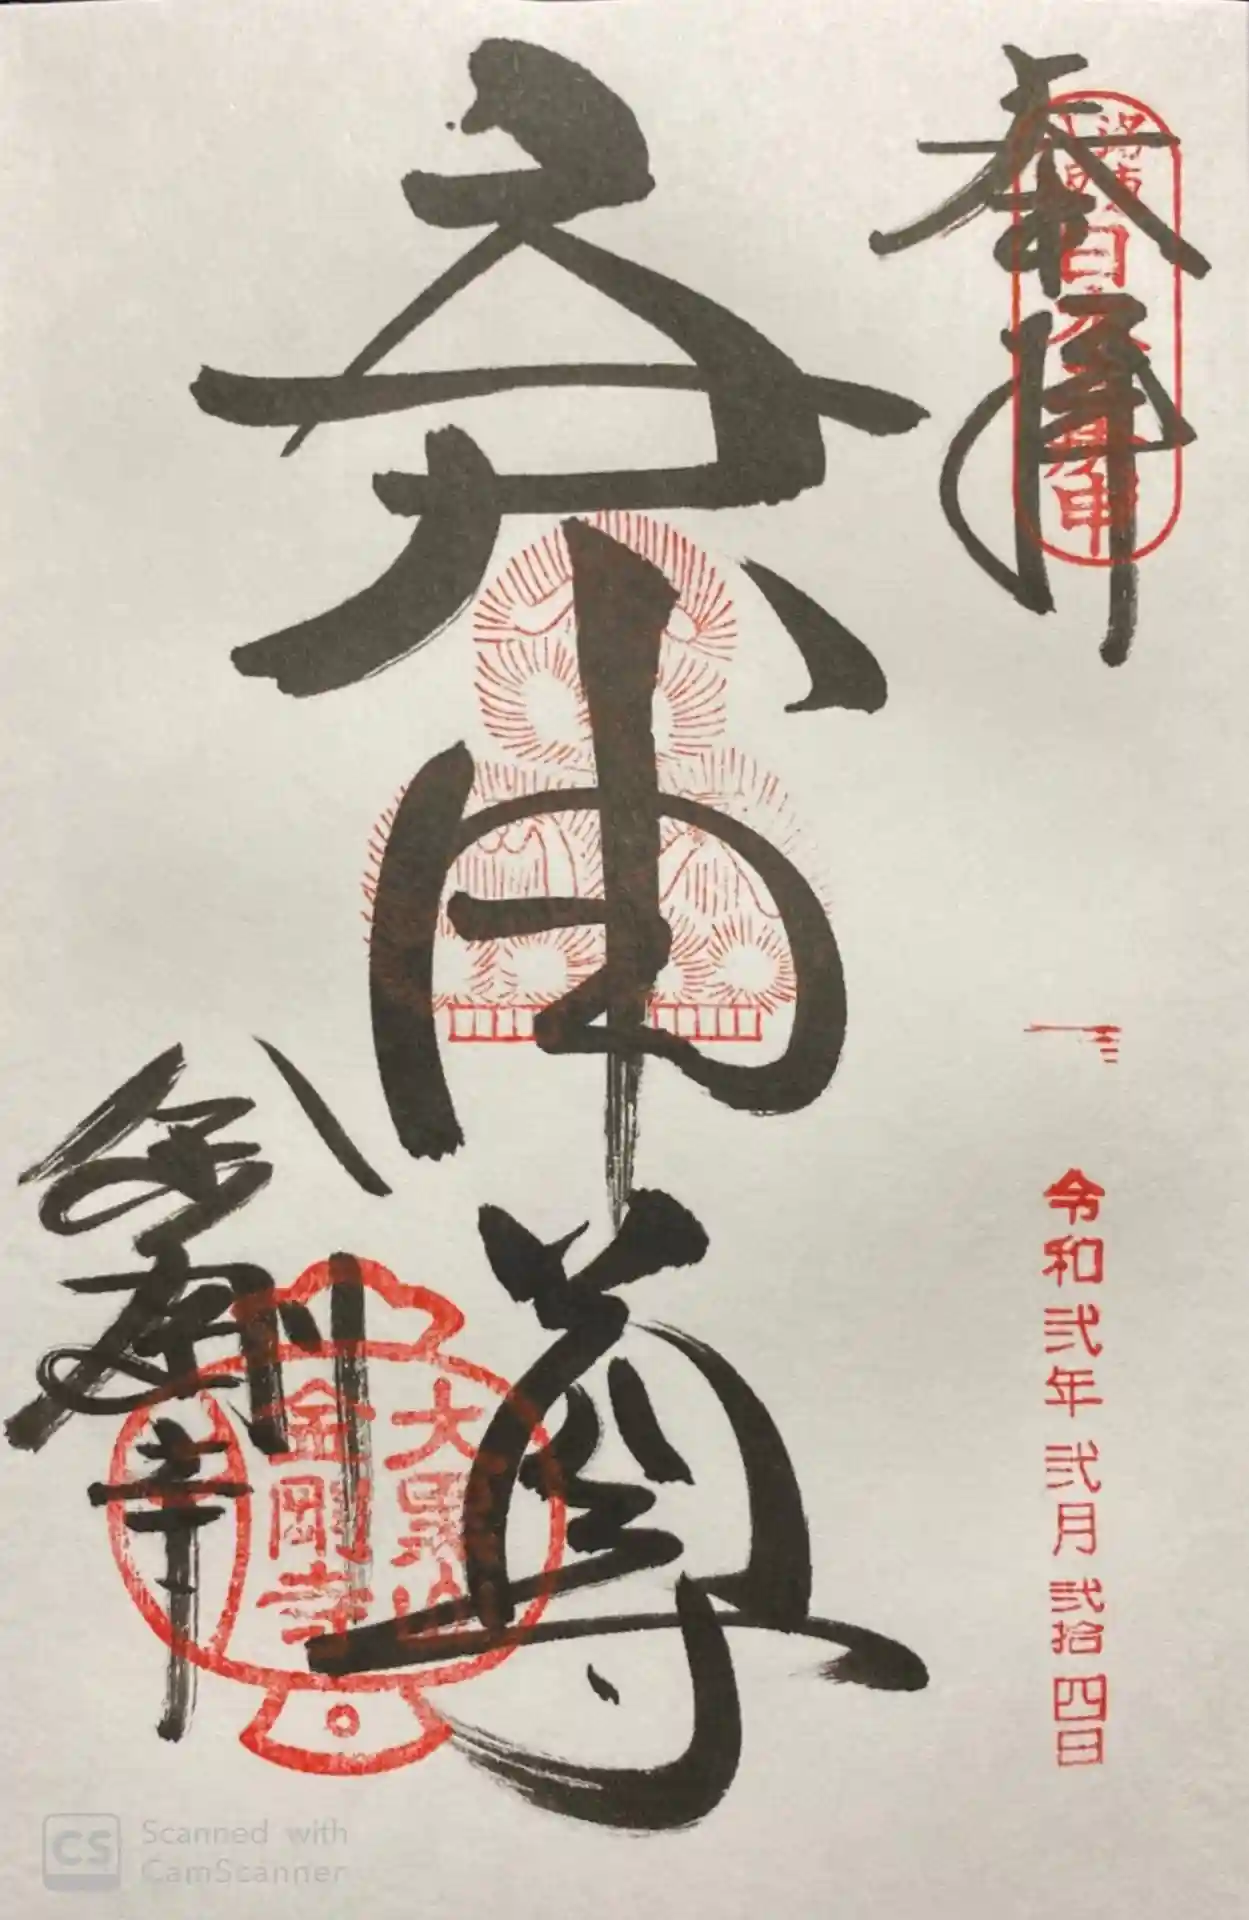 奉拝
令和弐年 弐月 弐拾四日
庚申尊
大黒山
金剛寺
金剛寺
Scanned with
CamScanner